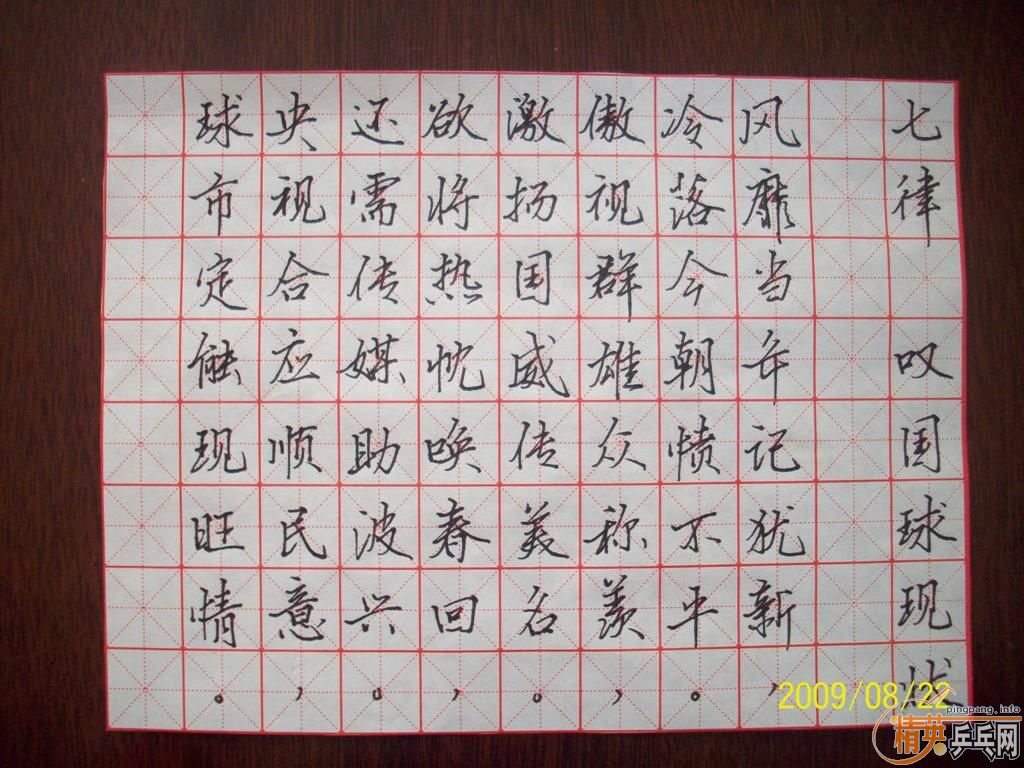 七律 叹国球现状
风靡当年记犹新，
冷落今朝愤不平。
傲视群雄众称羡，
激扬国威传美名。
欲将热忱唤春回，
还需传媒助波兴。
央视合应顺民意，
球市定能现旺情。
2009/08/22
pingpang.info
精英乒乓网